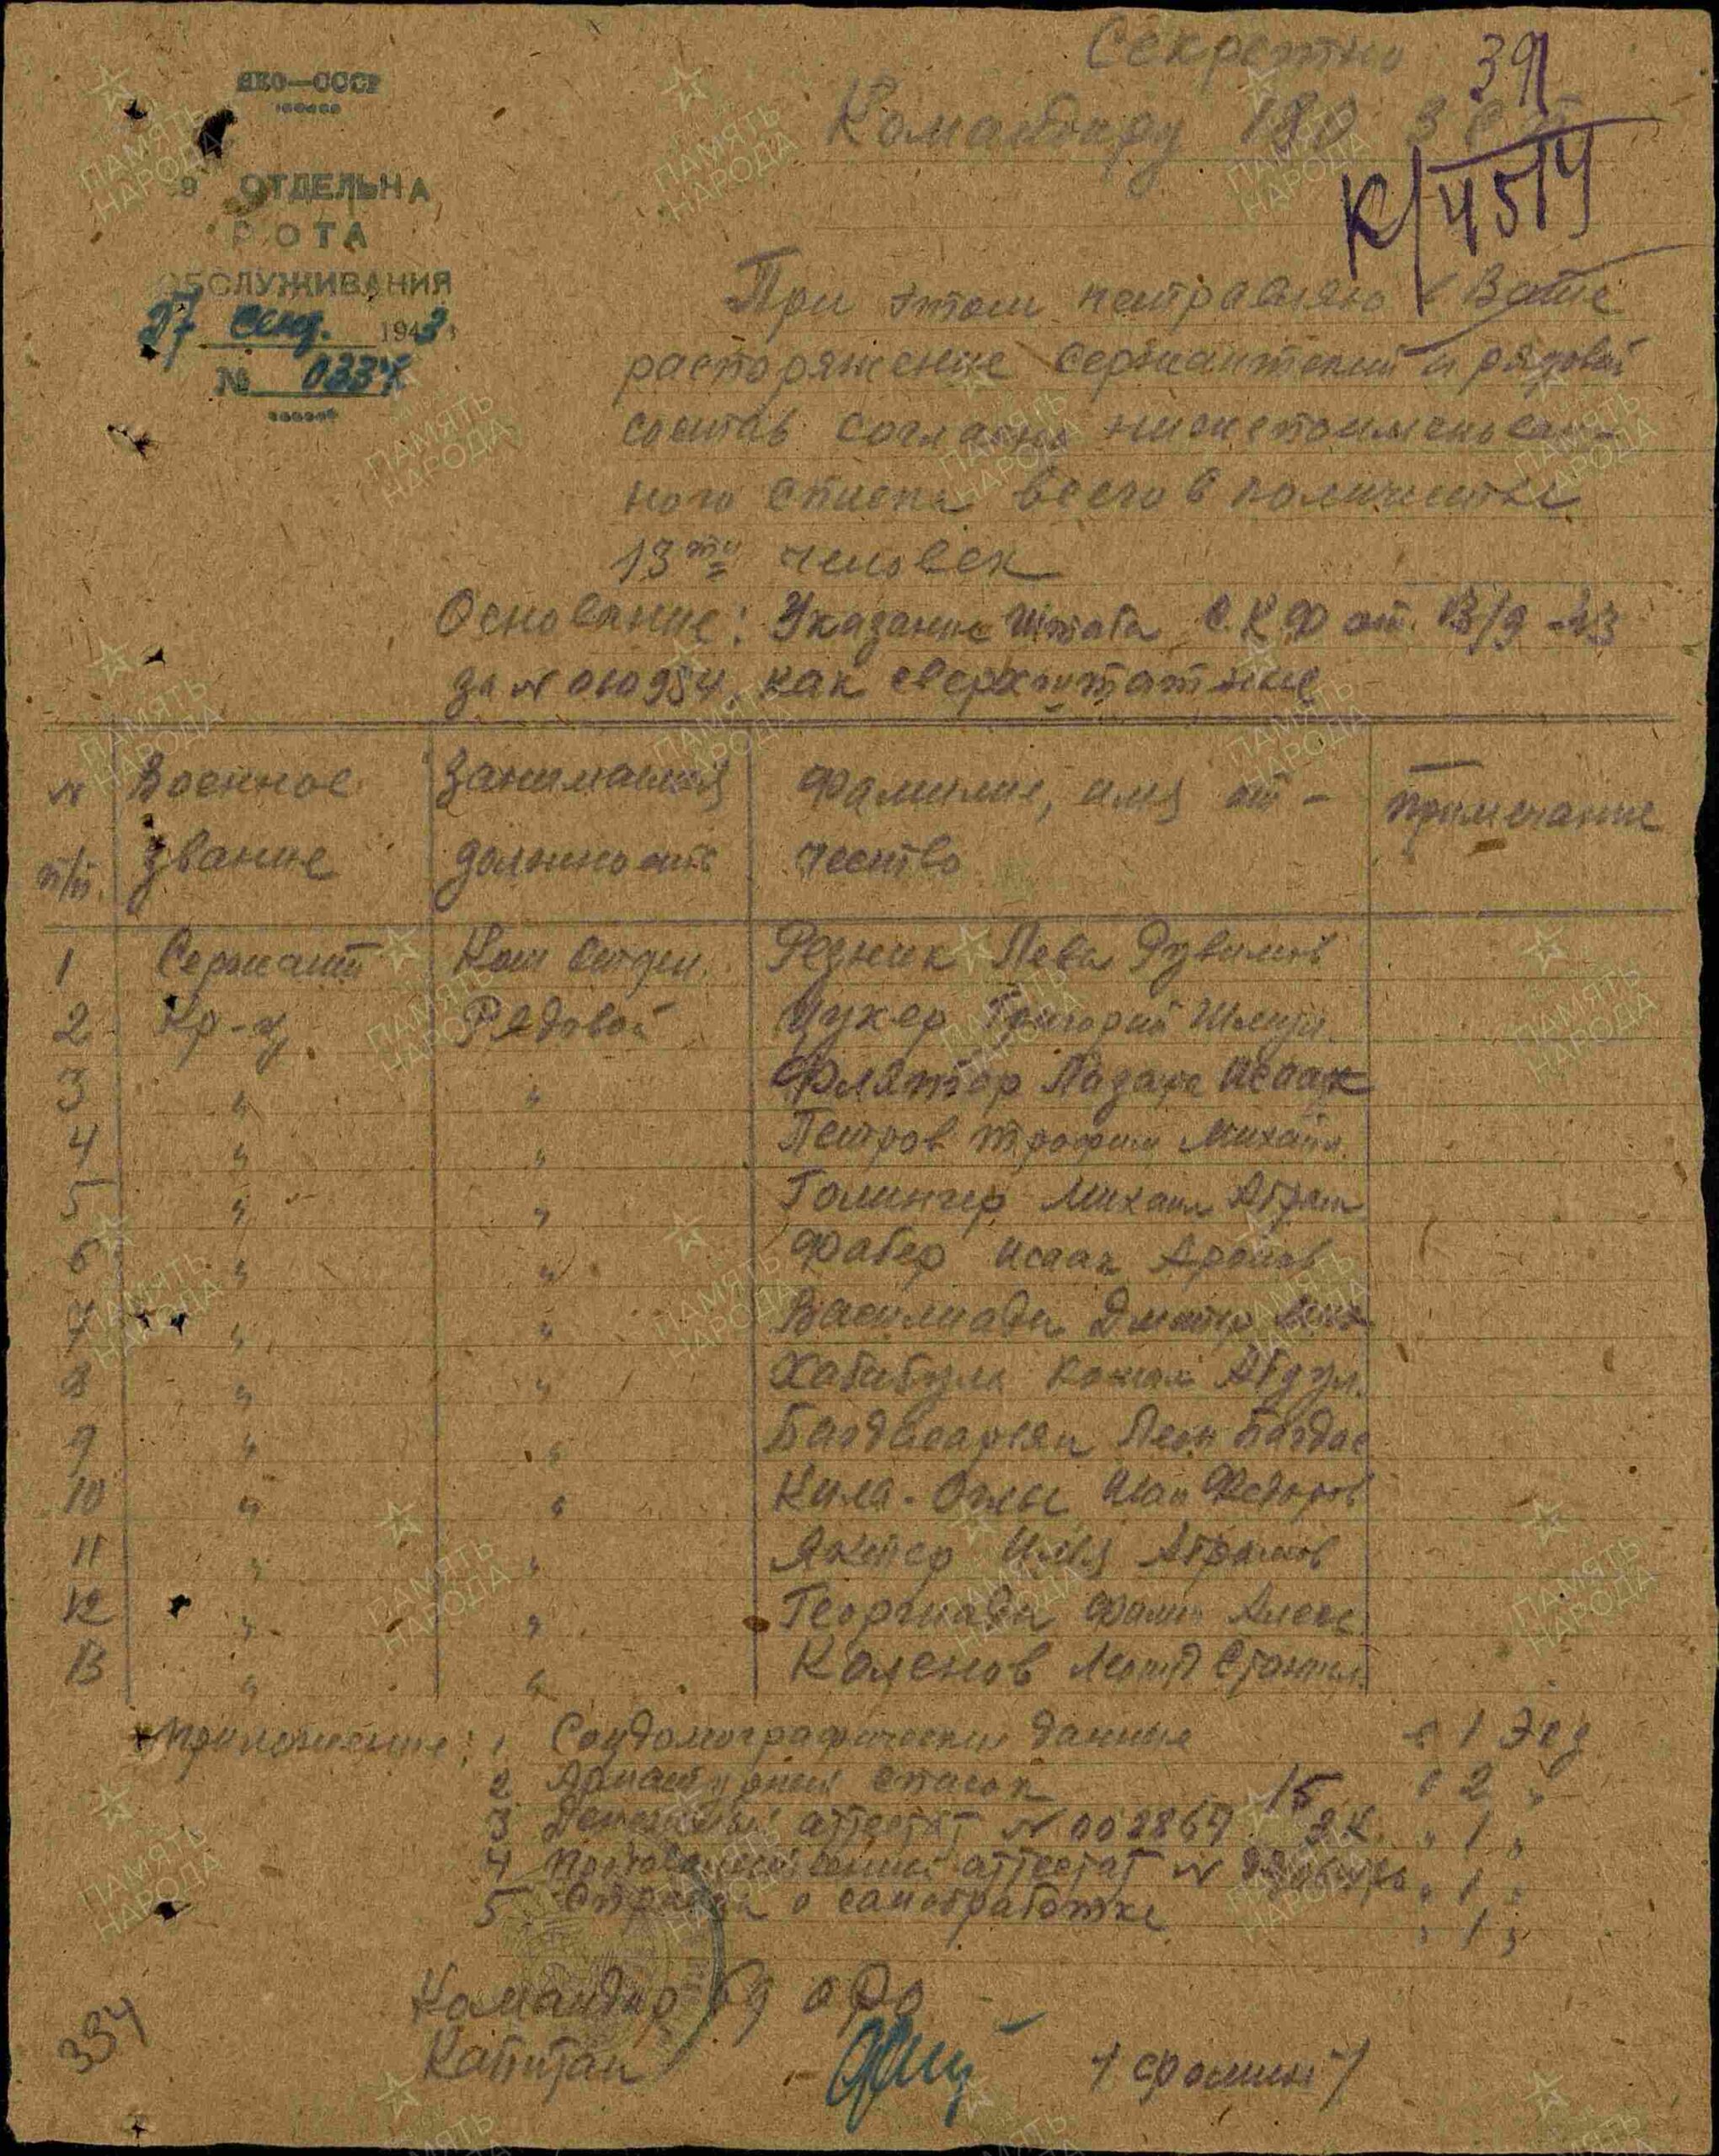 Секретно
39
НКО—СССР
Командиру 180 ЗСП
К/4514
9 ОТДЕЛЬНА
РОТА
ОБСЛУЖИВАНИЯ
27 сент. 1943
№ 0334
При этом неправляю в Ваше
распоряжение сержантский и рядовой
состав согласно нижепоименован-
ного списка всего в количестве
13ти человек
Основание: Указание Штаба С.К.Ф от. 13/9-43
за № 010984 как сверхштатные
№ п/п.
Военное звание
Занимаемая должность
Фамилие, имя от-чество
Примечание
1 Сержант Ком Отдел. Резник Лева Рувимов
2 Кр-ц Редовой Цукер Григорий
3 " " Флятор Лазарь Исаак
4 " " Петров Трофим Михайл
5 " " Голингер Михаил Абрам
6 " " Фабер Исаак Аронов
7 " " Василиади Дмитр
8 " " Хабибула Абдул.
9 " " Багдасарян Леон Багдас
10 " " Кила-Оглы Иван Федоров
11 " " Якнер Илья Абрамов
12 " " Георгиади Алекс
13 " " Каленов Леонид
Приложение: 1. Соцдемографические данные в 1 Экз
2 Арматурный список " 2 "
3 Денежный аттестат № 002867 15 2К. " 1 "
4 аттестат № " 1 "
5 Справка о санобработке " 1 "
Командир 69 ОРО
Капитан /Фомин/
334
ПАМЯТЬ НАРОДА